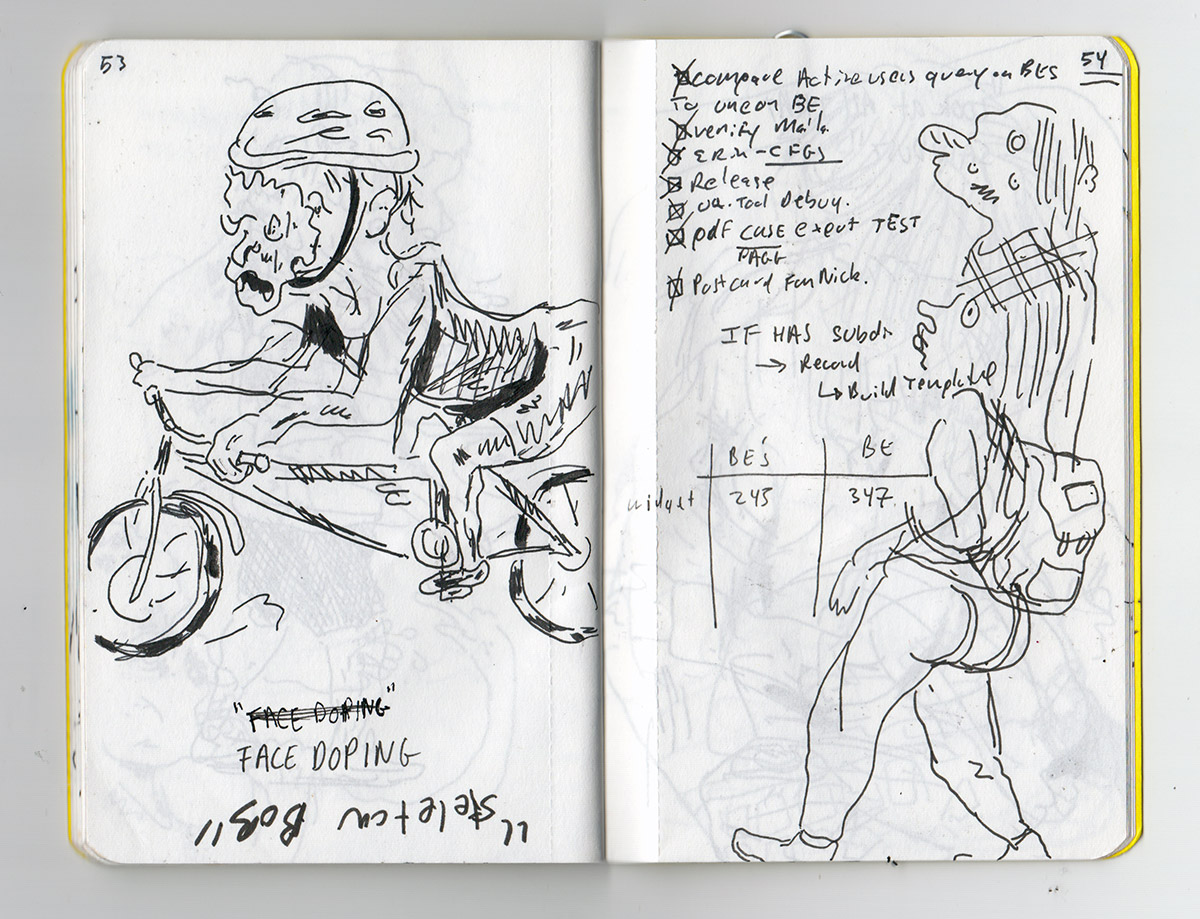 53
"FACE DOPING"
FACE DOPING
"skeleton BOB"
54
compare Active users query on BES
To uncon BE
verify Mails
ERM-CFGS
Release
Tool Debug.
pdf CASE export TEST
PAGE
Postcard For Nick.
IF HAS subdir
→ Record
↳ Build Template
BE's BE
widget 245 347